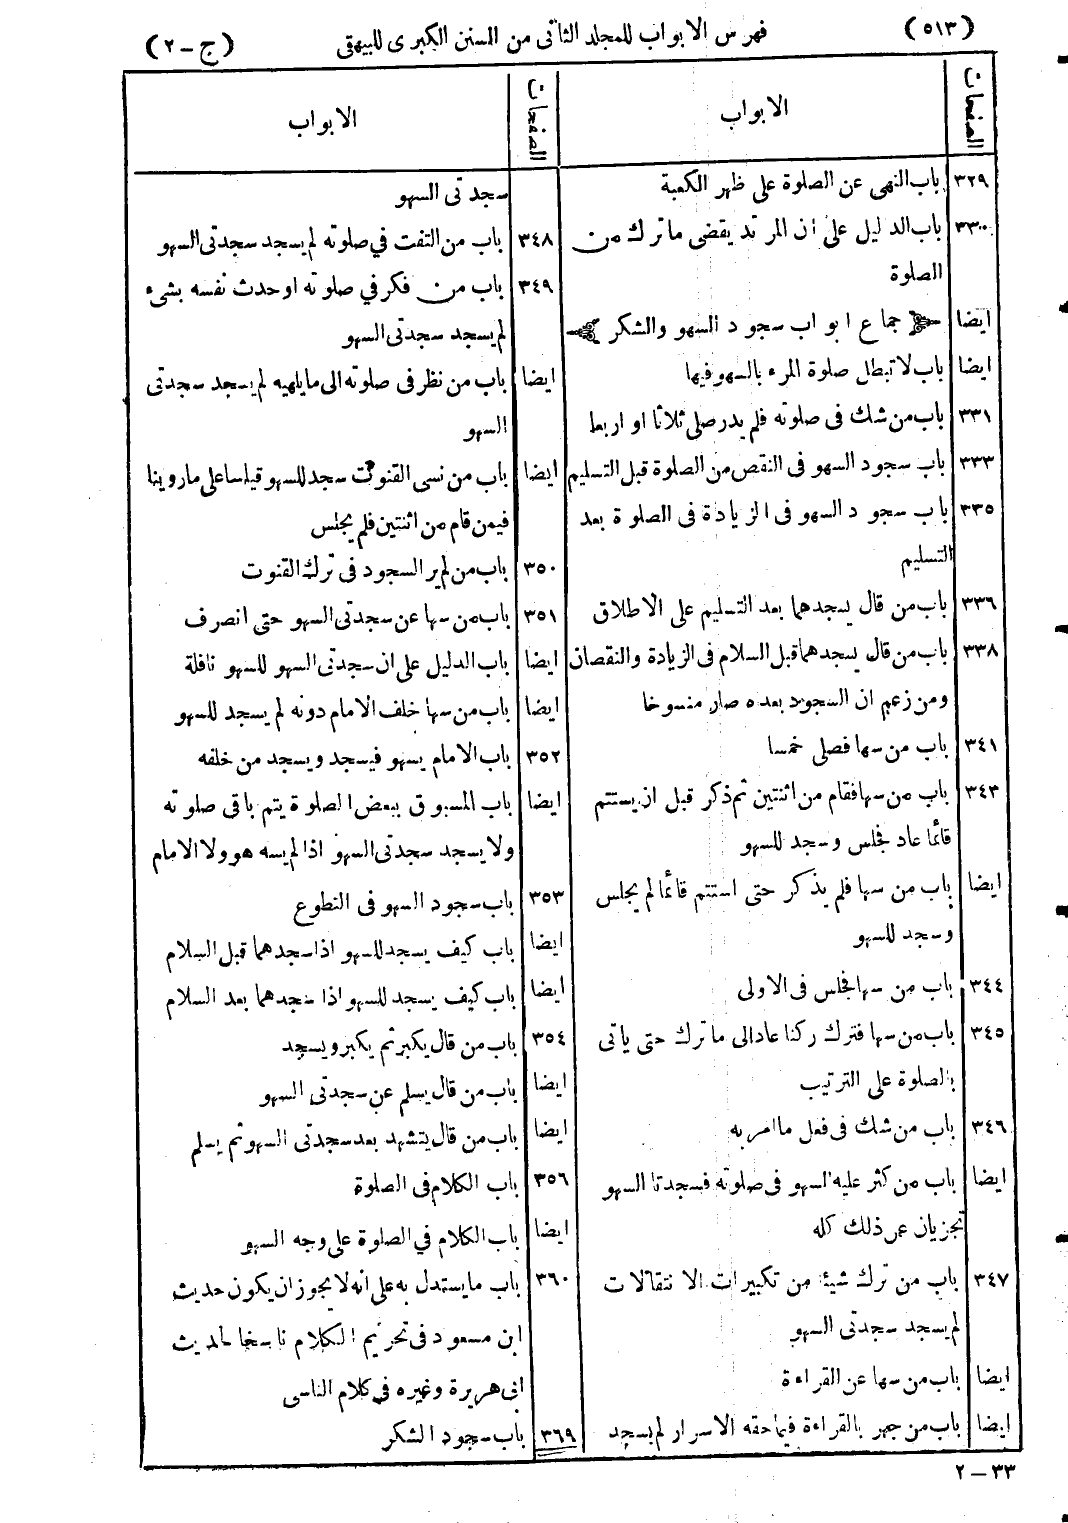 (٥١٣) فهرس الابواب للمجلد الثانى من السنن الكبرى للبيهقى (ج – ٢)
الصفحات الابواب
٣٢٩ باب النهى عن الصلوة على ظهر الكعبة
٣٣٠ باب الدليل على ان المرتد يقضى ما ترك من
الصلوة
ايضا جماع ابواب سجود السهو والشكر
ايضا باب لا تبطل صلوة المرء بالسهو فيها
٣٣١ باب من شك فى صلوته فلم يدر صلى ثلاثا او اربعا
٣٣٣ باب سجود السهو فى النقص من الصلوة قبل التسليم
٣٣٥ باب سجود السهو فى الزيادة فى الصلوة بعد
التسليم
٣٣٦ باب من قال يسجدهما بعد التسليم على الاطلاق
٣٣٨ باب من قال يسجدهما قبل السلام فى الزيادة والنقصان
ومن زعم ان السجود بعده صار منسوخا
٣٤١ باب من سها فصلى خمسا
٣٤٣ باب من سها فقام من اثنتين ثم ذكر قبل ان يستتم
قائما عاد فجلس وسجد للسهو
ايضا باب من سها فلم يذكر حتى استتم قائما لم يجلس
وسجد للسهو
٣٤٤ باب من سها فجلس فى الاولى
٣٤٥ باب من سها فترك ركنا عاد الى ما ترك حتى ياتى
بالصلوة على الترتيب
٣٤٦ باب من شك فى فعل ما امر به
ايضا باب من كثر عليه السهو فى صلوته فسجدتا السهو
تجزيان عن ذلك كله
٣٤٧ باب من ترك شيئا من تكبيرات الانتقالات
لم يسجد سجدتى السهو
ايضا باب من سها عن القراءة
ايضا باب من جهر بالقراءة فيما حقه الاسرار لم يسجد
الصفحات الابواب
سجدتى السهو
٣٤٨ باب من التفت في صلوته لم يسجد سجدتى السهو
٣٤٩ باب من فكر في صلوته او حدث نفسه بشىء
لم يسجد سجدتى السهو
ايضا باب من نظر فى صلوته الى ما يلهيه لم يسجد سجدتى
السهو
ايضا باب من نسى القنوت سجد للسهو قياسا على ما روينا
فيمن قام من اثنتين فلم يجلس
٣٥٠ باب من لم ير السجود فى ترك القنوت
٣٥١ باب من سها عن سجدتى السهو حتى انصرف
ايضا باب الدليل على ان سجدتى السهو للسهو نافلة
ايضا باب من سها خلف الامام دونه لم يسجد للسهو
٣٥٢ باب الامام يسهو فيسجد ويسجد من خلفه
ايضا باب المسبوق ببعض الصلوة يتم باقى صلوته
ولا يسجد سجدتى السهو اذا لم يسه هو ولا الامام
٣٥٣ باب سجود السهو فى التطوع
ايضا باب كيف يسجد للسهو اذا سجدهما قبل السلام
ايضا باب كيف يسجد للسهو اذا سجدهما بعد السلام
٣٥٤ باب من قال يكبر ثم يكبر ويسجد
ايضا باب من قال يسلم عن سجدتى السهو
ايضا باب من قال يتشهد بعد سجدتى السهو ثم يسلم
٣٥٦ باب الكلام فى الصلوة
ايضا باب الكلام في الصلوة على وجه السهو
٣٦٠ باب ما يستدل به على انه لا يجوز ان يكون حديث
ابن مسعود فى تحريم الكلام ناسخا لحديث
ابى هريرة وغيره في كلام الناسى
٣٦٩ باب سجود الشكر
٣٣ – ٢